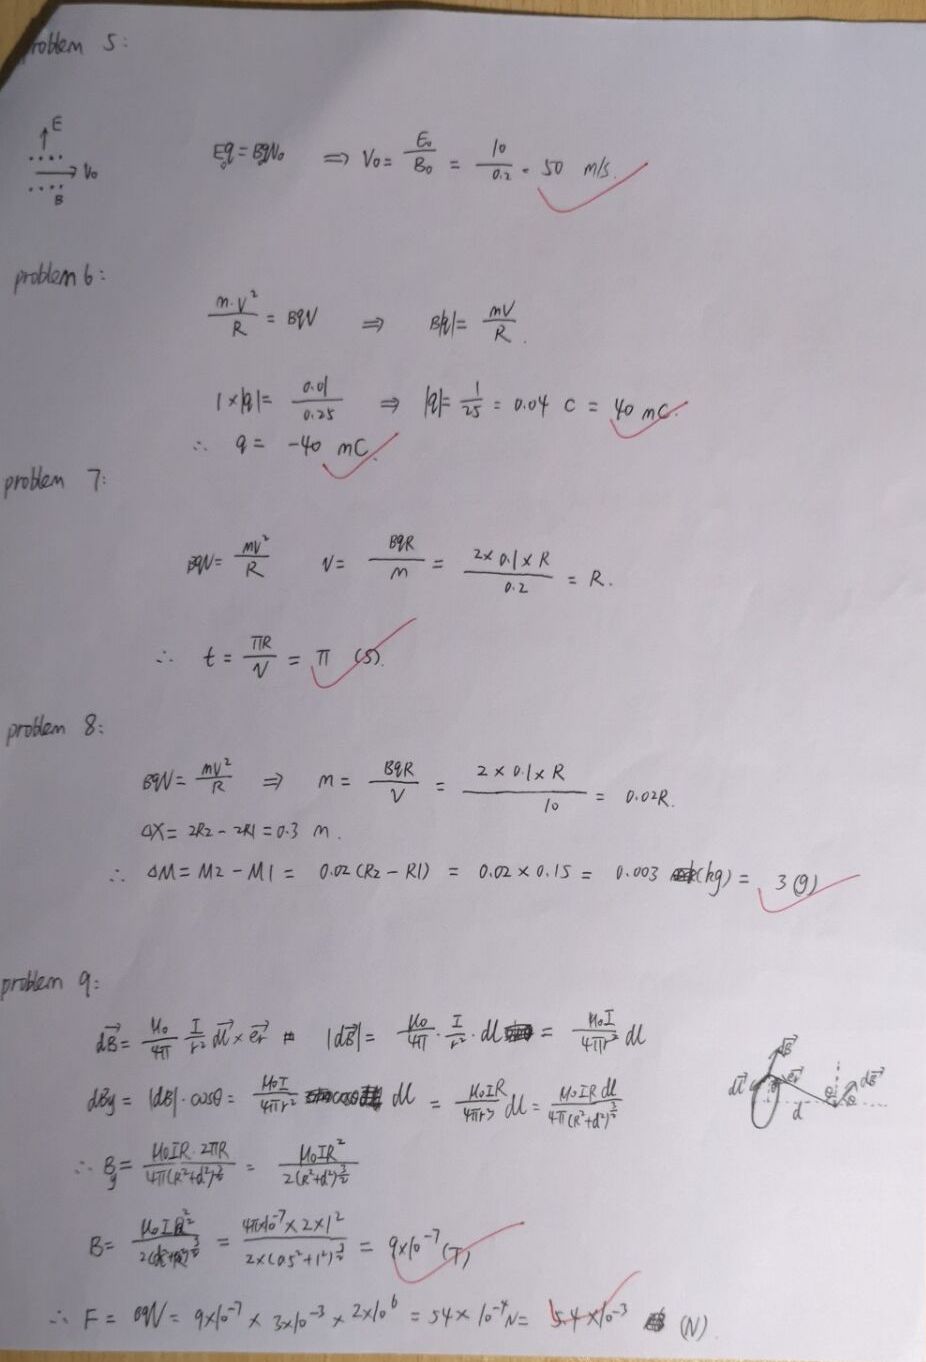 problem 5:
E
V₀
B
Eq = BqV₀ ⇒ V₀ = E₀/B₀ = 10/0.2 = 50 m/s.
problem 6:
m·V²/R = BqV ⇒ B|q| = mV/R.
1×|q| = 0.01/0.25 ⇒ |q| = 1/25 = 0.04 C = 40 mC.
∴ q = -40 mC.
problem 7:
BqV = mV²/R V = BqR/m = 2×0.1×R/0.2 = R.
∴ t = πR/V = π (S).
problem 8:
BqV = mV²/R ⇒ m = BqR/V = 2×0.1×R/10 = 0.02R.
ΔX = 2R2 - 2R1 = 0.3 m.
∴ ΔM = M2 - M1 = 0.02(R2 - R1) = 0.02 × 0.15 = 0.003 (kg) = 3(g)
problem 9:
dB⃗ = μ₀/4π I/r² dl⃗ × e⃗r |dB⃗| = μ₀/4π · I/r² · dl = μ₀I/4πr² dl
dBy = |dB⃗|·cosθ = μ₀I/4πr² dl = μ₀IR/4πr³ dl = μ₀IR dl/4π(R²+d²)^(3/2)
dB⃗
dl⃗
e⃗r
d
θ
θ
dB⃗
∴ By = μ₀IR·2πR/4π(R²+d²)^(3/2) = μ₀IR²/2(R²+d²)^(3/2)
B = μ₀IR²/2(d²+R²)^(3/2) = 4π×10⁻⁷×2×1²/2×(0.5²+1²)^(3/2) = 9×10⁻⁷(T)
∴ F = BqV = 9×10⁻⁷ × 3×10⁻³ × 2×10⁶ = 54×10⁻⁴N = 5.4×10⁻³ (N)